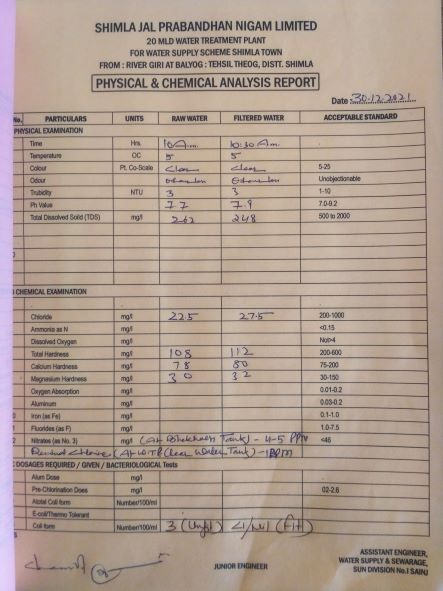 SHIMLA JAL PRABANDHAN NIGAM LIMITED
20 MLD WATER TREATMENT PLANT
FOR WATER SUPPLY SCHEME SHIMLA TOWN
FROM : RIVER GIRI AT BALYOG : TEHSIL THEOG, DISTT. SHIMLA
PHYSICAL & CHEMICAL ANALYSIS REPORT
Date 30.12.2021
No. PARTICULARS UNITS RAW WATER FILTERED WATER ACCEPTABLE STANDARD
PHYSICAL EXAMINATION
Time Hrs. 10 A.m. 10:30 A.m.
Temperature OC 5 5
Colour Pt. Co-Scale Clear Clear 5-25
Odour Odourless Odourless Unobjectionable
Trubidity NTU 3 3 1-10
Ph Value 7.7 7.9 7.0-9.2
Total Dissolved Solid (TDS) mg/l 262 248 500 to 2000
CHEMICAL EXAMINATION
Chloride mg/l 22.5 27.5 200-1000
Ammonia as N mg/l <0.15
Dissolved Oxygen mg/l Not>4
Total Hardness mg/l 108 112 200-600
Calcium Hardness mg/l 78 80 75-200
Magnesium Hardness mg/l 30 32 30-150
Oxygen Absorption mg/l 0.01-0.2
Aluminum mg/l 0.03-0.2
Iron (as Fe) mg/l 0.1-1.0
Fluorides (as F) mg/l 1.0-7.5
Nitrates (as No. 3) mg/l (At Tank) - 4-5 PPM <45
Residual Chlorine (At WTP Clear Water Tank) - 1 PPM
DOSAGES REQUIRED / GIVEN / BACTERIOLOGICAL Tests
Alum Dose mg/l
Pre-Chlorination Does mg/l 02-2.6
Atotal Coli form Number/100/ml
E-coli/Thermo Tolerant
Coli form Number/100/ml 3 (Unfit) <1/Nil (Fit)
JUNIOR ENGINEER
ASSISTANT ENGINEER,
WATER SUPPLY & SEWARAGE,
SUN DIVISION No.I SAINJ